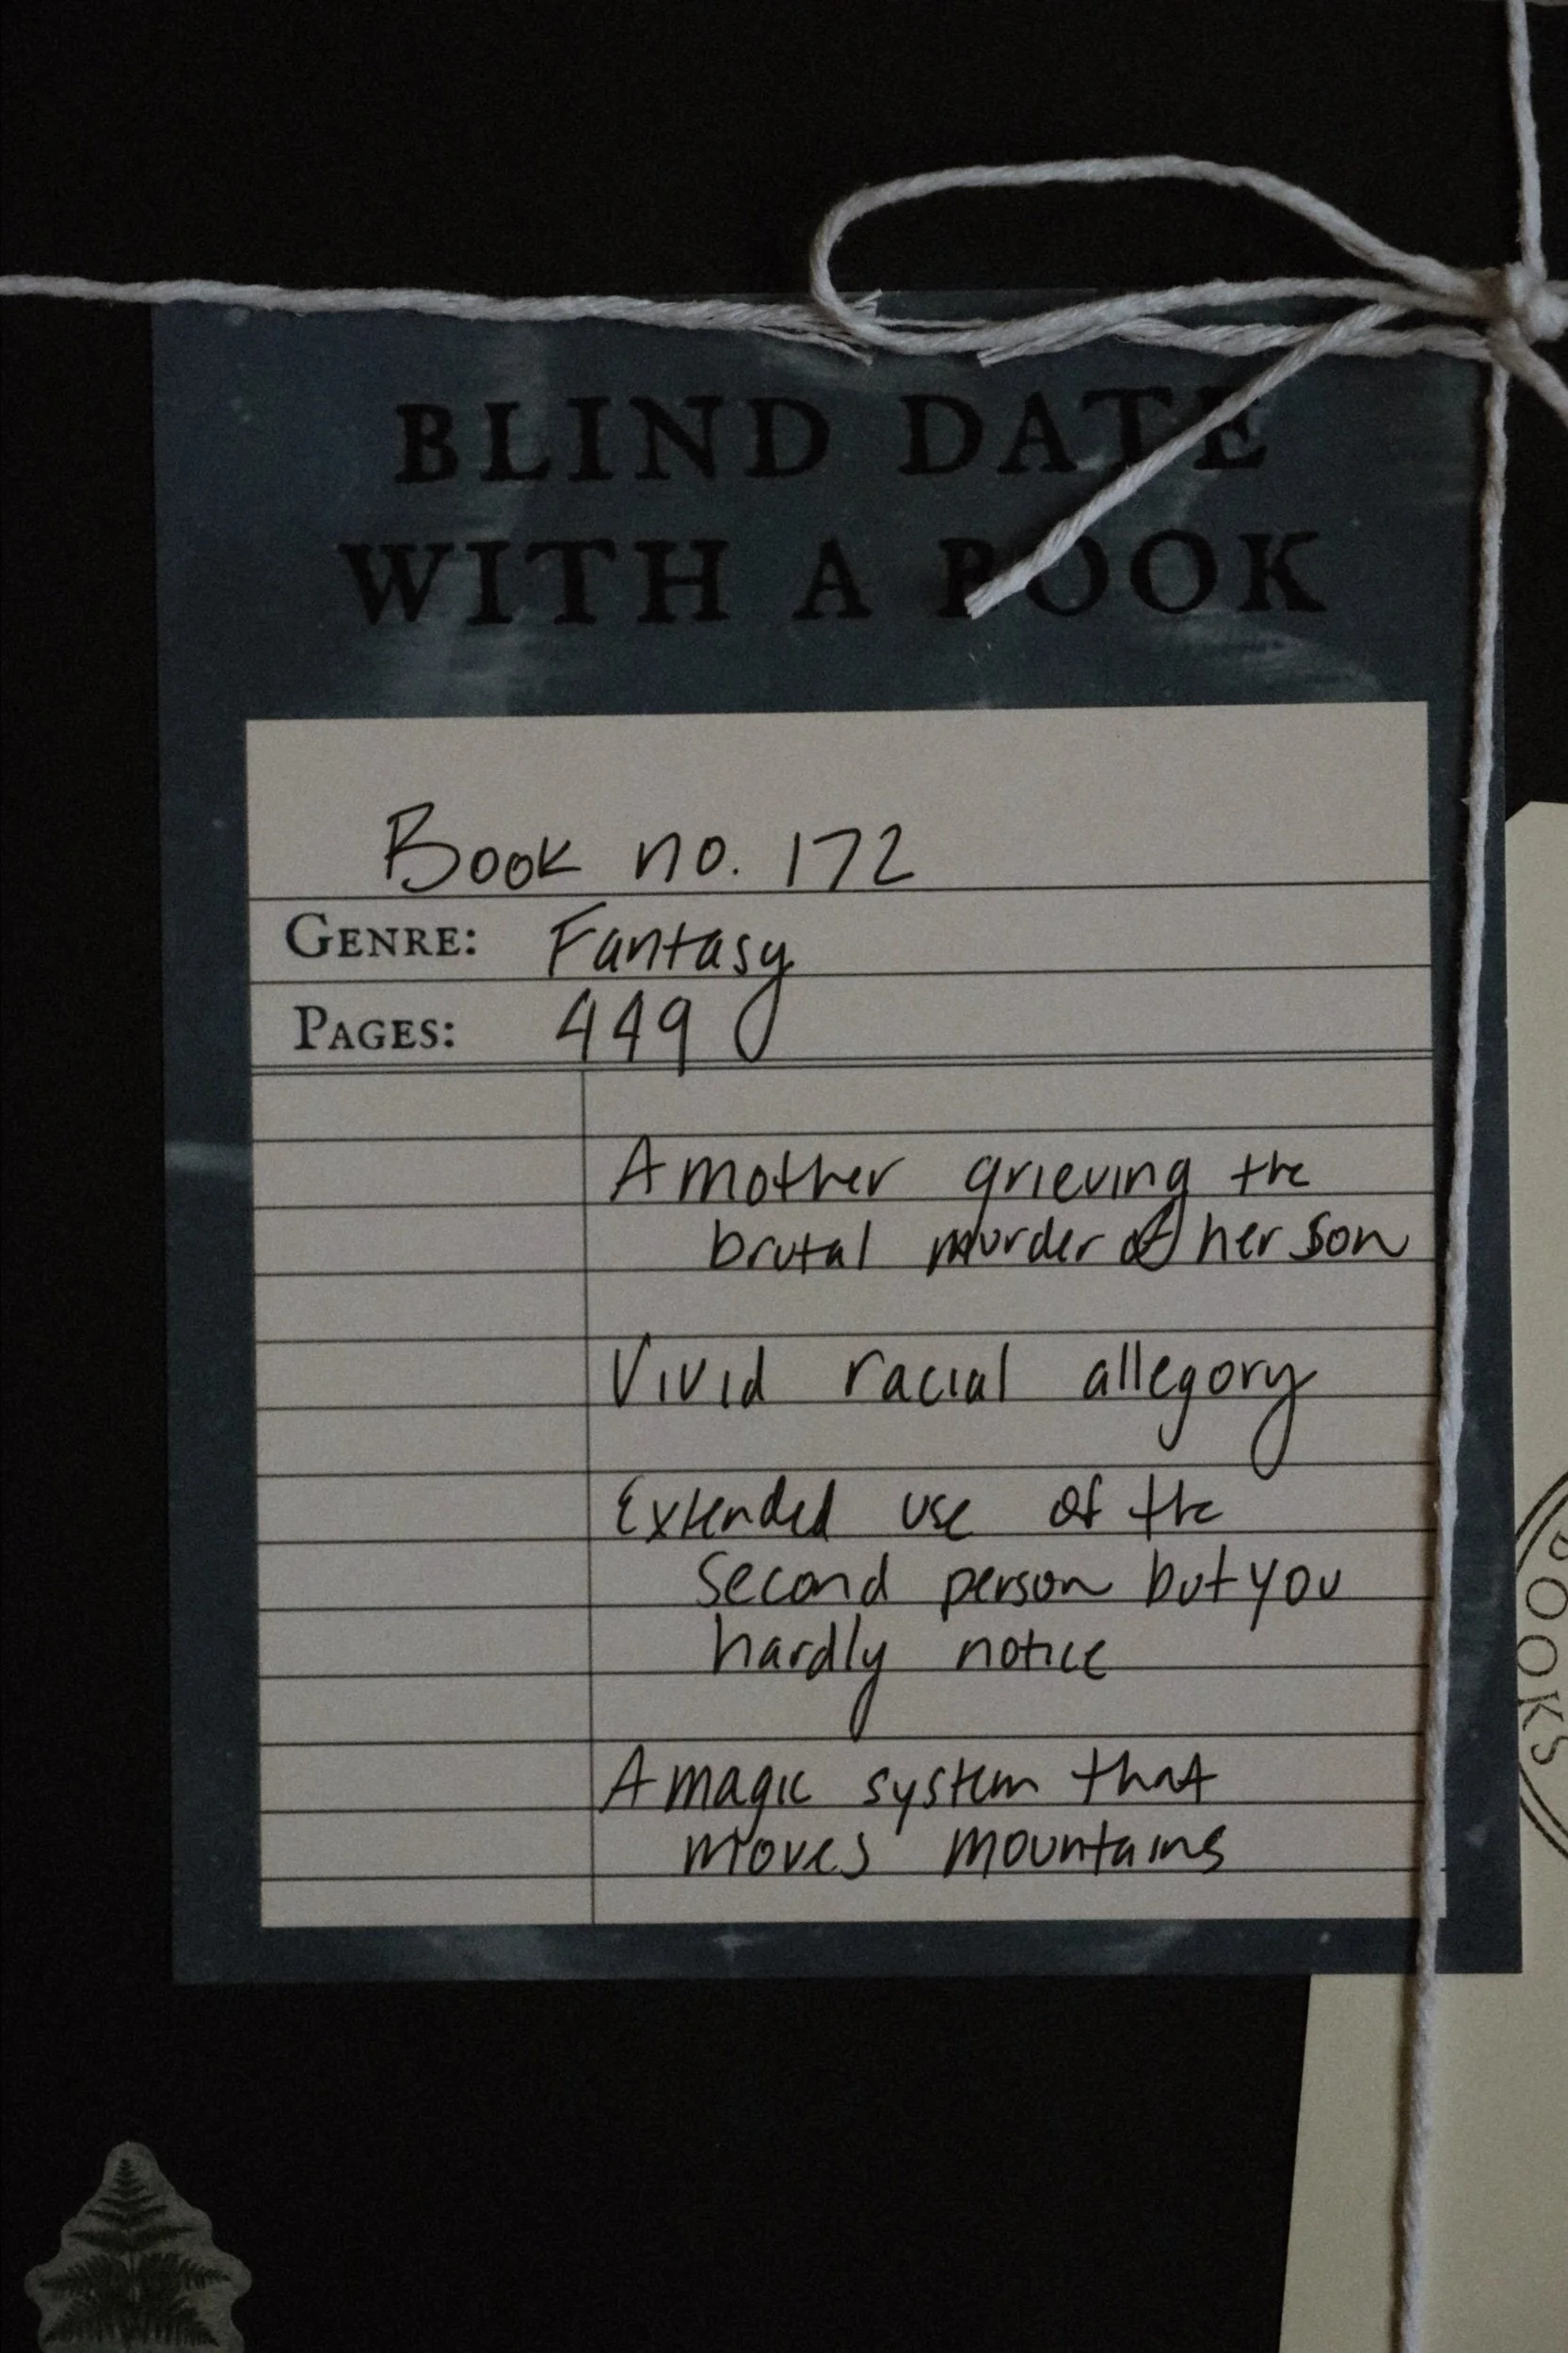 BLIND DATE
WITH A BOOK
Book no. 172
GENRE: Fantasy
PAGES: 449
A mother grieving the
brutal murder of her son
Vivid racial allegory
Extended use of the
second person but you
hardly notice
A magic system that
moves mountains
BOOKS